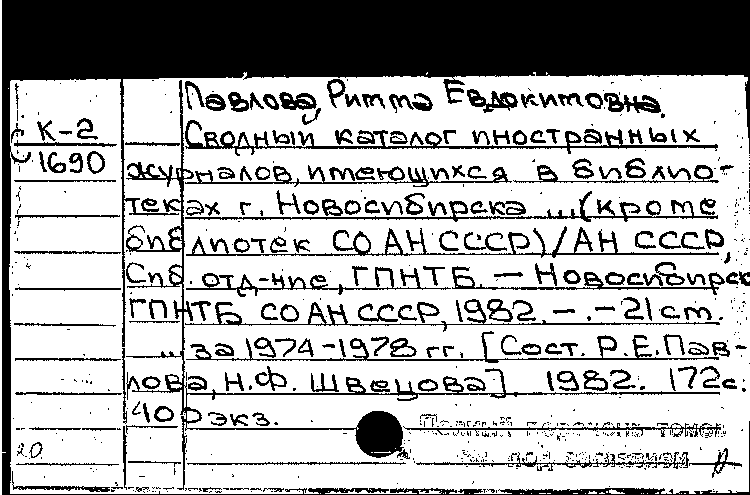 Павлова, Римма Евдокимовна.
К-2 Сводный каталог иностранных
1690 журналов, имеющихся в библио-
теках г. Новосибирска ... (кроме
библиотек СО АН СССР) / АН СССР,
Сиб. отд-ние, ГПНТБ. — Новосибирск
ГПНТБ СО АН СССР, 1982. – . – 21 см.
... за 1974-1978 гг. [Сост. Р.Е. Пав-
лова, Н.Ф. Швецова]. 1982. 172 с.
400 экз.
Полный перечень томов
см. под заглавием
20